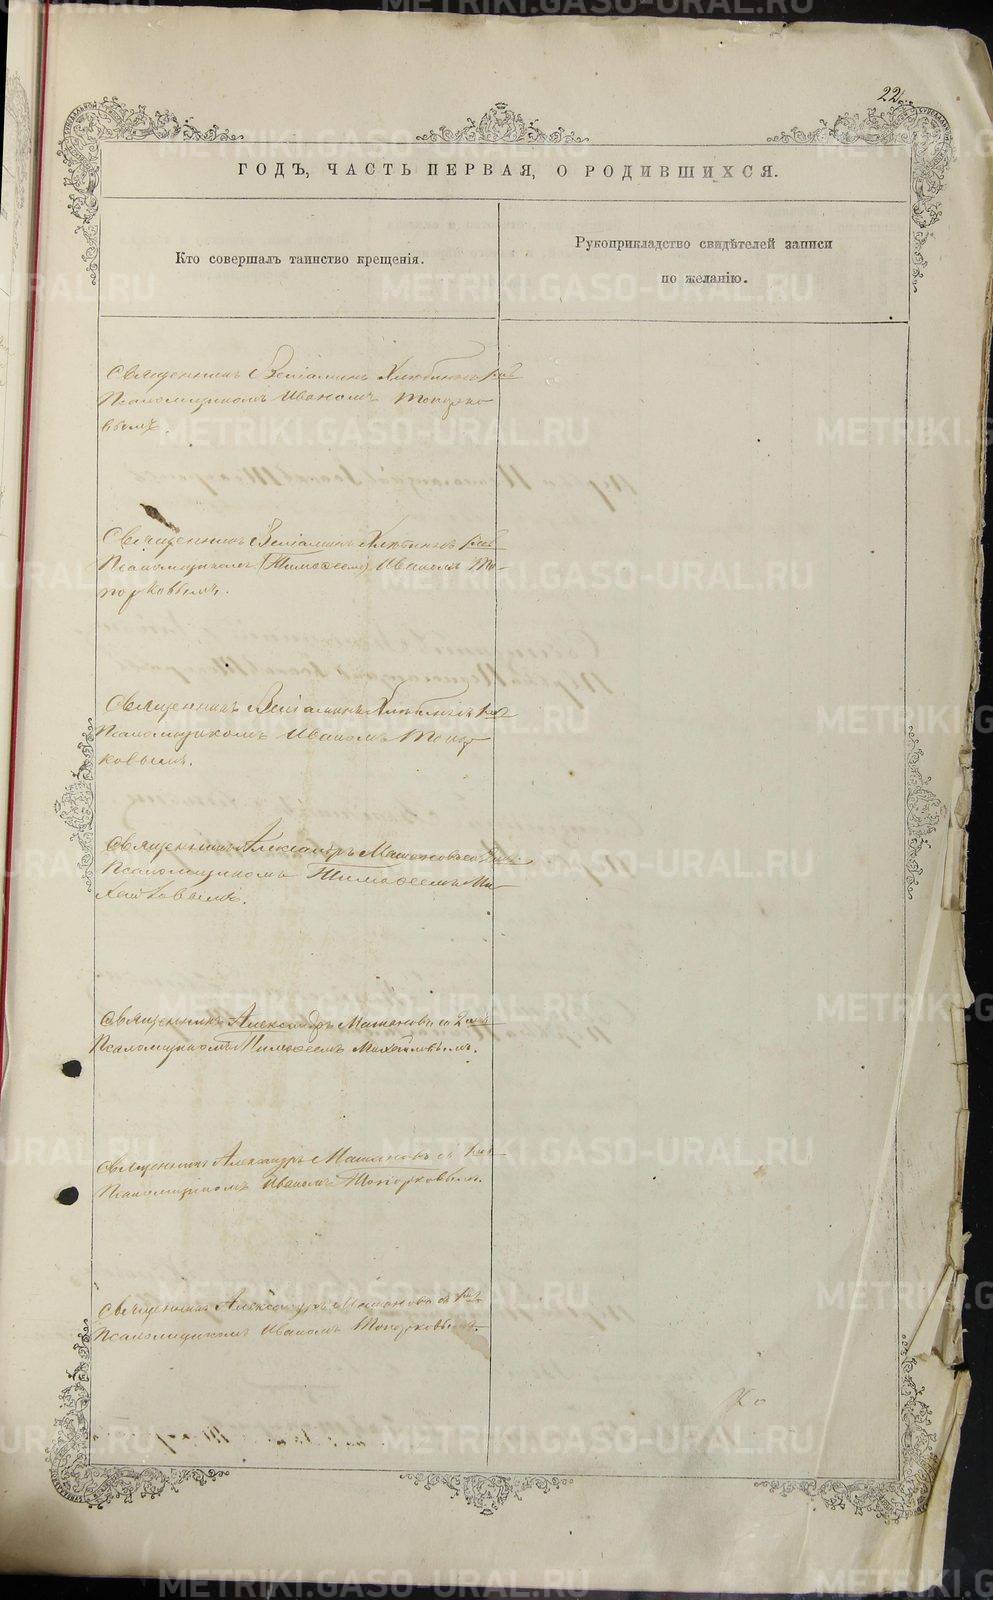 22
ГОДЪ, ЧАСТЬ ПЕРВАЯ, О РОДИВШИХСЯ.
Кто совершалъ таинство крещенія.
Рукоприкладство свидѣтелей записи
по желанію.
Священникъ Веніаминъ Хлюбинъ
Псаломщикомъ Иваномъ Топорко
вымъ.
Священникъ Веніаминъ Хлюбинъ
Псаломщикомъ (Тимофеемъ) Иваномъ То-
порковымъ.
Священникъ Веніаминъ Хлюбинъ
Псаломщикомъ Иваномъ Топор
ковымъ.
Священникъ Александръ Матановъ со
Псаломщикомъ Тимофеемъ Ми-
хайловымъ.
Священникъ Александръ Матановъ со 2мъ
Псаломщикомъ Тимофеемъ Михайловымъ.
Священникъ Александръ Матановъ съ
Псаломщикомъ Иваномъ Топорковымъ.
Священникъ Александръ Матановъ съ
Псаломщикомъ Иваномъ Топорковымъ.
METRIKI.GASO-URAL.RU